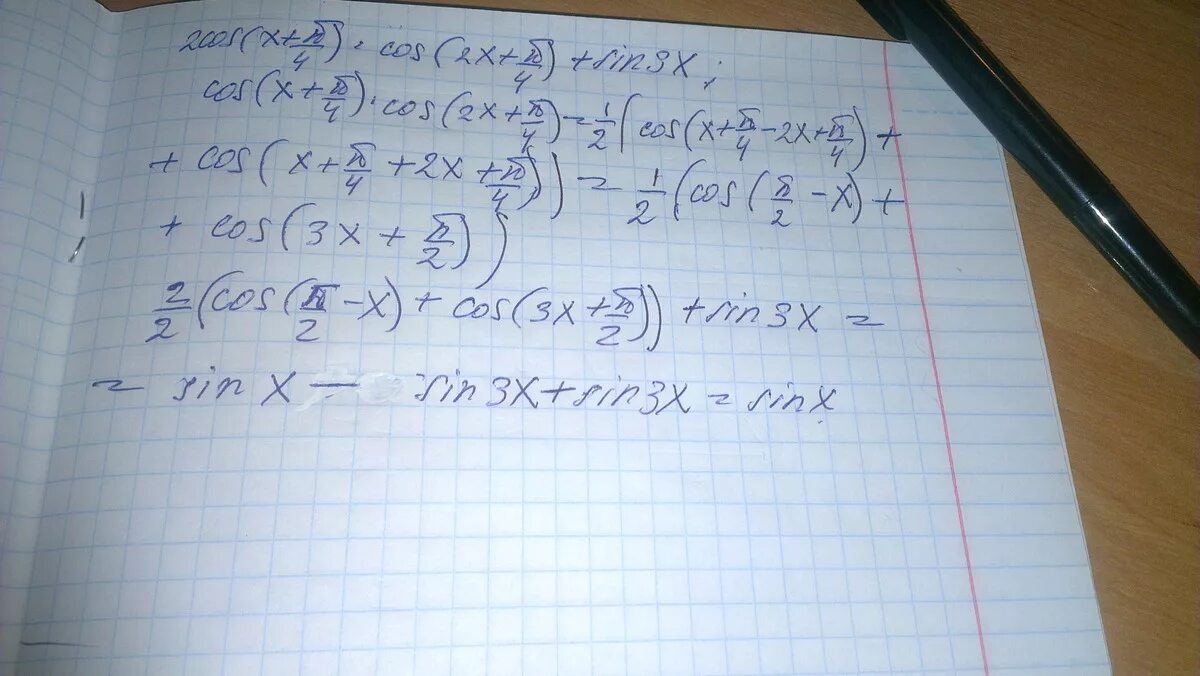 2cos(x+π/4)·cos(2x+π/4)+sin3x;
cos(x+π/4)·cos(2x+π/4)=1/2(cos(x+π/4-2x+π/4)+
+cos(x+π/4+2x+π/4))=1/2(cos(π/2-x)+
+cos(3x+π/2))
2/2(cos(π/2-x)+cos(3x+π/2))+sin3x=
=sinx-sin3x+sin3x=sinx